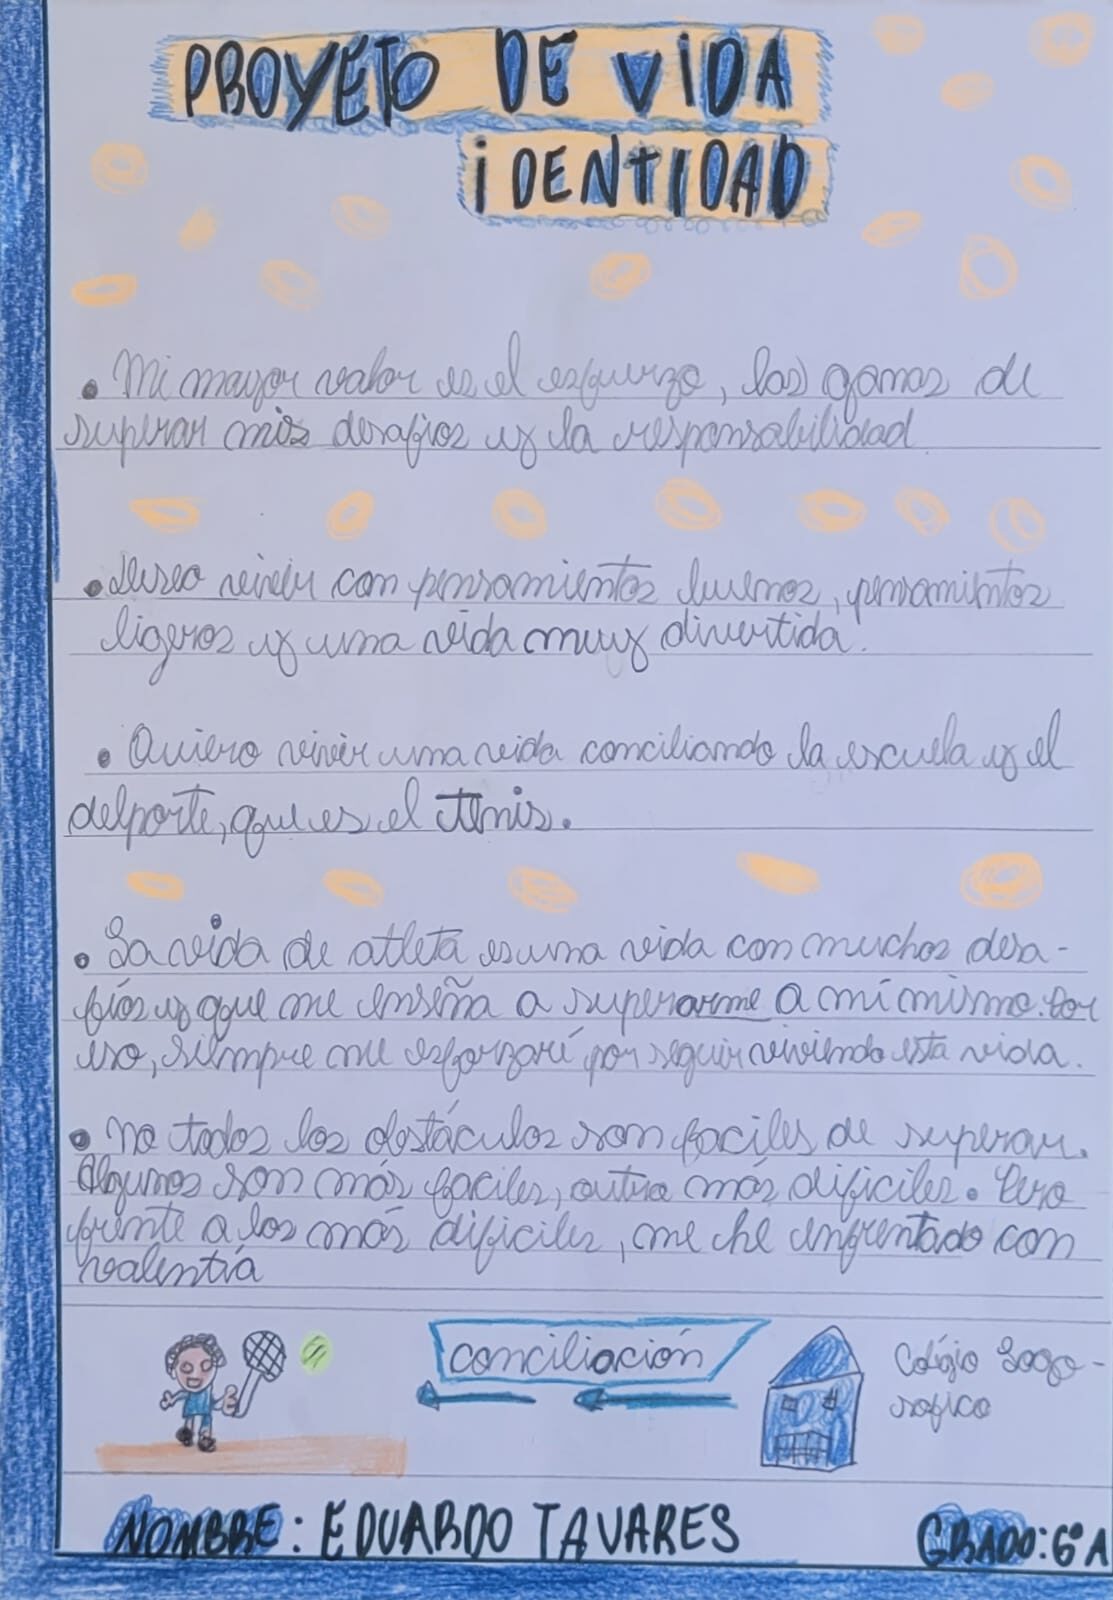 PROYETO DE ViDA
iDENTIDAD
• Mi mayor valor es el esfuerzo, las ganas de
superar mis desafios y la responsabilidad
• Deseo vivir con pensamientos buenos, pensamintos
ligeros y una vida muy divertida.
• Quiero vivir una vida conciliando la escuela y el
delporte, que es el tenis.
• La vida de atleta es una vida con muchos desa-
fíos y que me enseña a superarme a mí mismo. Por
eso, siempre me esforzaré por seguir viviendo esta vida.
• No todos los obstáculos son faciles de superar.
Algunos son más faciles, outra más dificiles. Pero
frente a los más dificiles, me he enfrentado con
valentía
conciliación
Colégio
NOMBRE: EDUARDO TAVARES
GRADO: 6º A